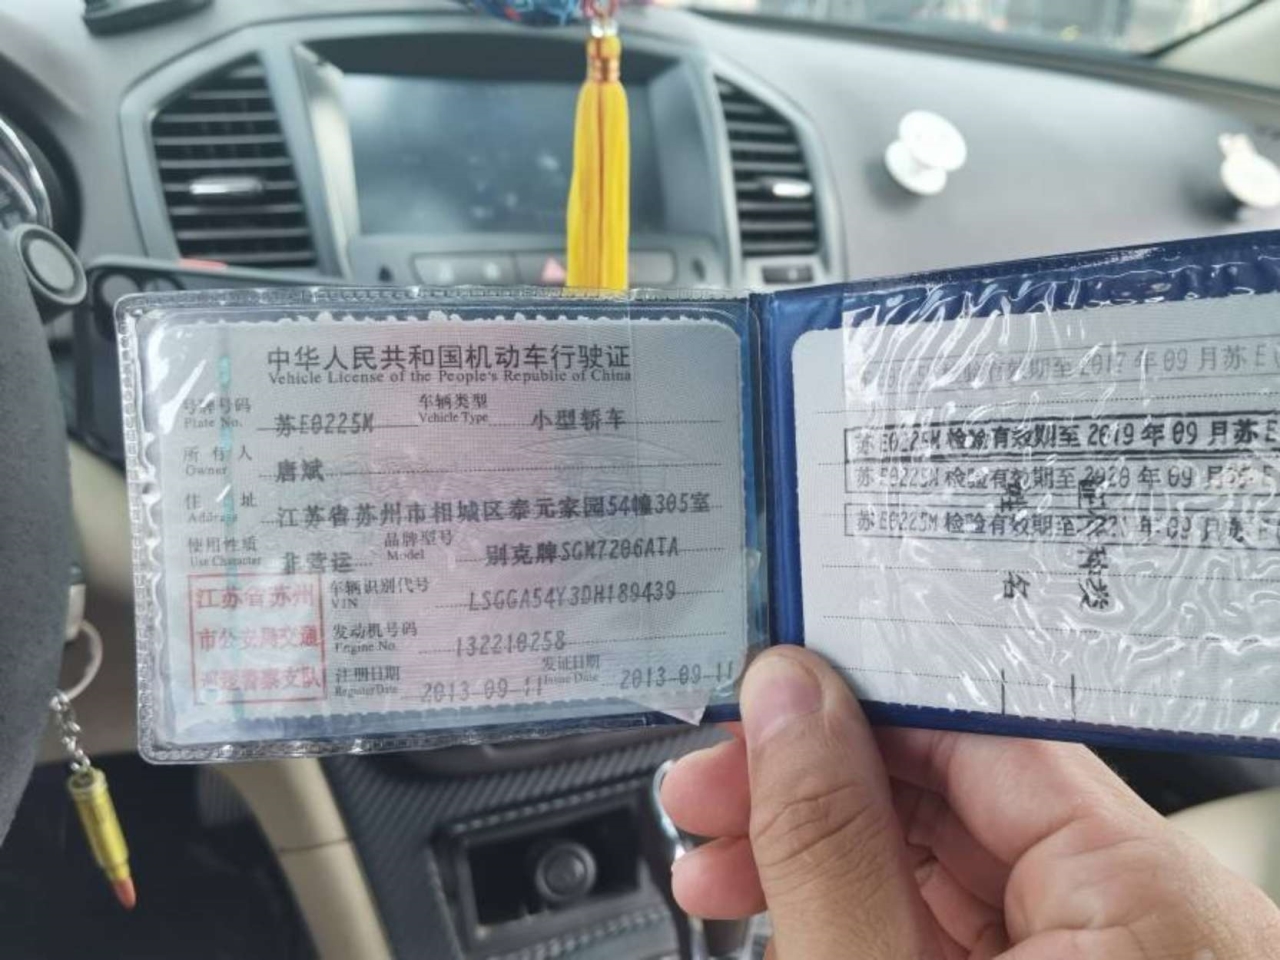 中华人民共和国机动车行驶证
Vehicle License of the People's Republic of China
号牌号码 苏E0225M 车辆类型 小型轿车
Plate No. Vehicle Type
所有人 唐斌
Owner
住址 江苏省苏州市相城区泰元家园54幢305室
Address
使用性质 非营运 品牌型号 别克牌SGM7206ATA
Use Character Model
江苏省苏州
市公安局交通
巡逻警察支队
车辆识别代号 LSGGA54Y3DH189439
VIN
发动机号码 132210258
Engine No.
注册日期 2013-09-11 发证日期 2013-09-11
Register Date Issue Date
检验有效期至 2017年09月苏E
苏E0225M检验有效期至2019年09月苏E
苏E0225M检验有效期至2020年09月苏E
苏E0225M检验有效期至